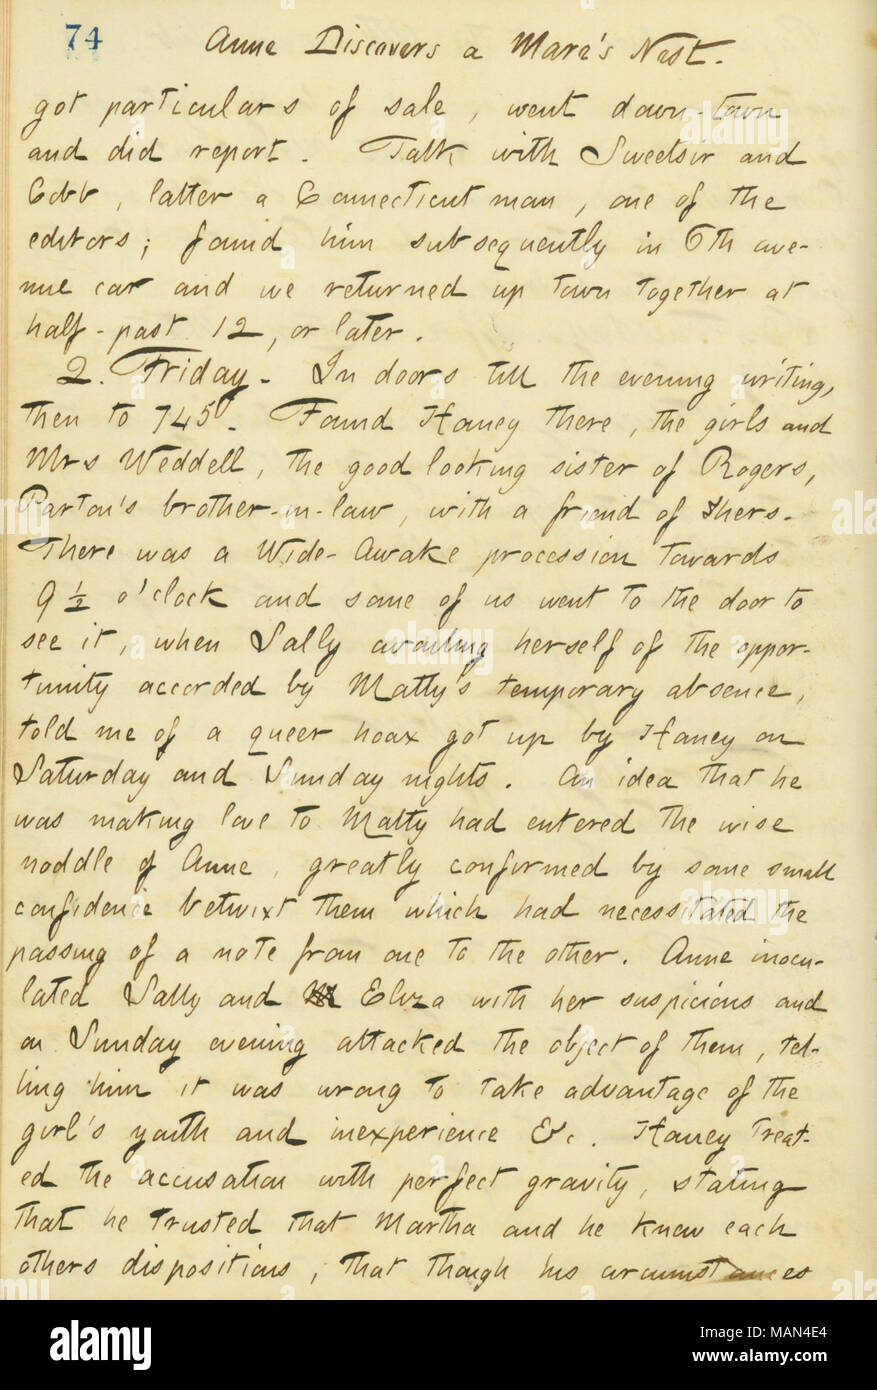 74
Anne Discovers a Mare's Nest.
got particulars of sale, went down-town
and did report. Talk with Sweetsir and
Cobb, latter a Connecticut man, one of the
editors; found him subsequently in 6th ave-
nue car and we returned up town together at
half-past 12, or later.
2. Friday. In doors till the evening writing,
then to 745. Found Haney there, the girls and
Mrs Weddell, the good looking sister of Rogers,
Parton's brother-in-law, with a friend of hers.
There was a Wide-Awake procession towards
9 ½ o'clock and some of us went to the door to
see it, when Sally availing herself of the oppor-
tunity accorded by Matty's temporary absence,
told me of a queer hoax got up by Haney on
Saturday and Sunday nights. An idea that he
was making love to Matty had entered the wise
noddle of Anne, greatly confirmed by some small
confidence betwixt them which had necessitated the
passing of a note from one to the other. Anne inocu-
lated Sally and Eliza with her suspicions and
on Sunday evening attacked the object of them, tel-
ling him it was wrong to take advantage of the
girl's youth and inexperience &c. Haney treat-
ed the accusation with perfect gravity, stating
that he trusted that Martha and he knew each
others dispositions, that though his circumstances
alamy
Image ID: MAN4E4
www.alamy.com